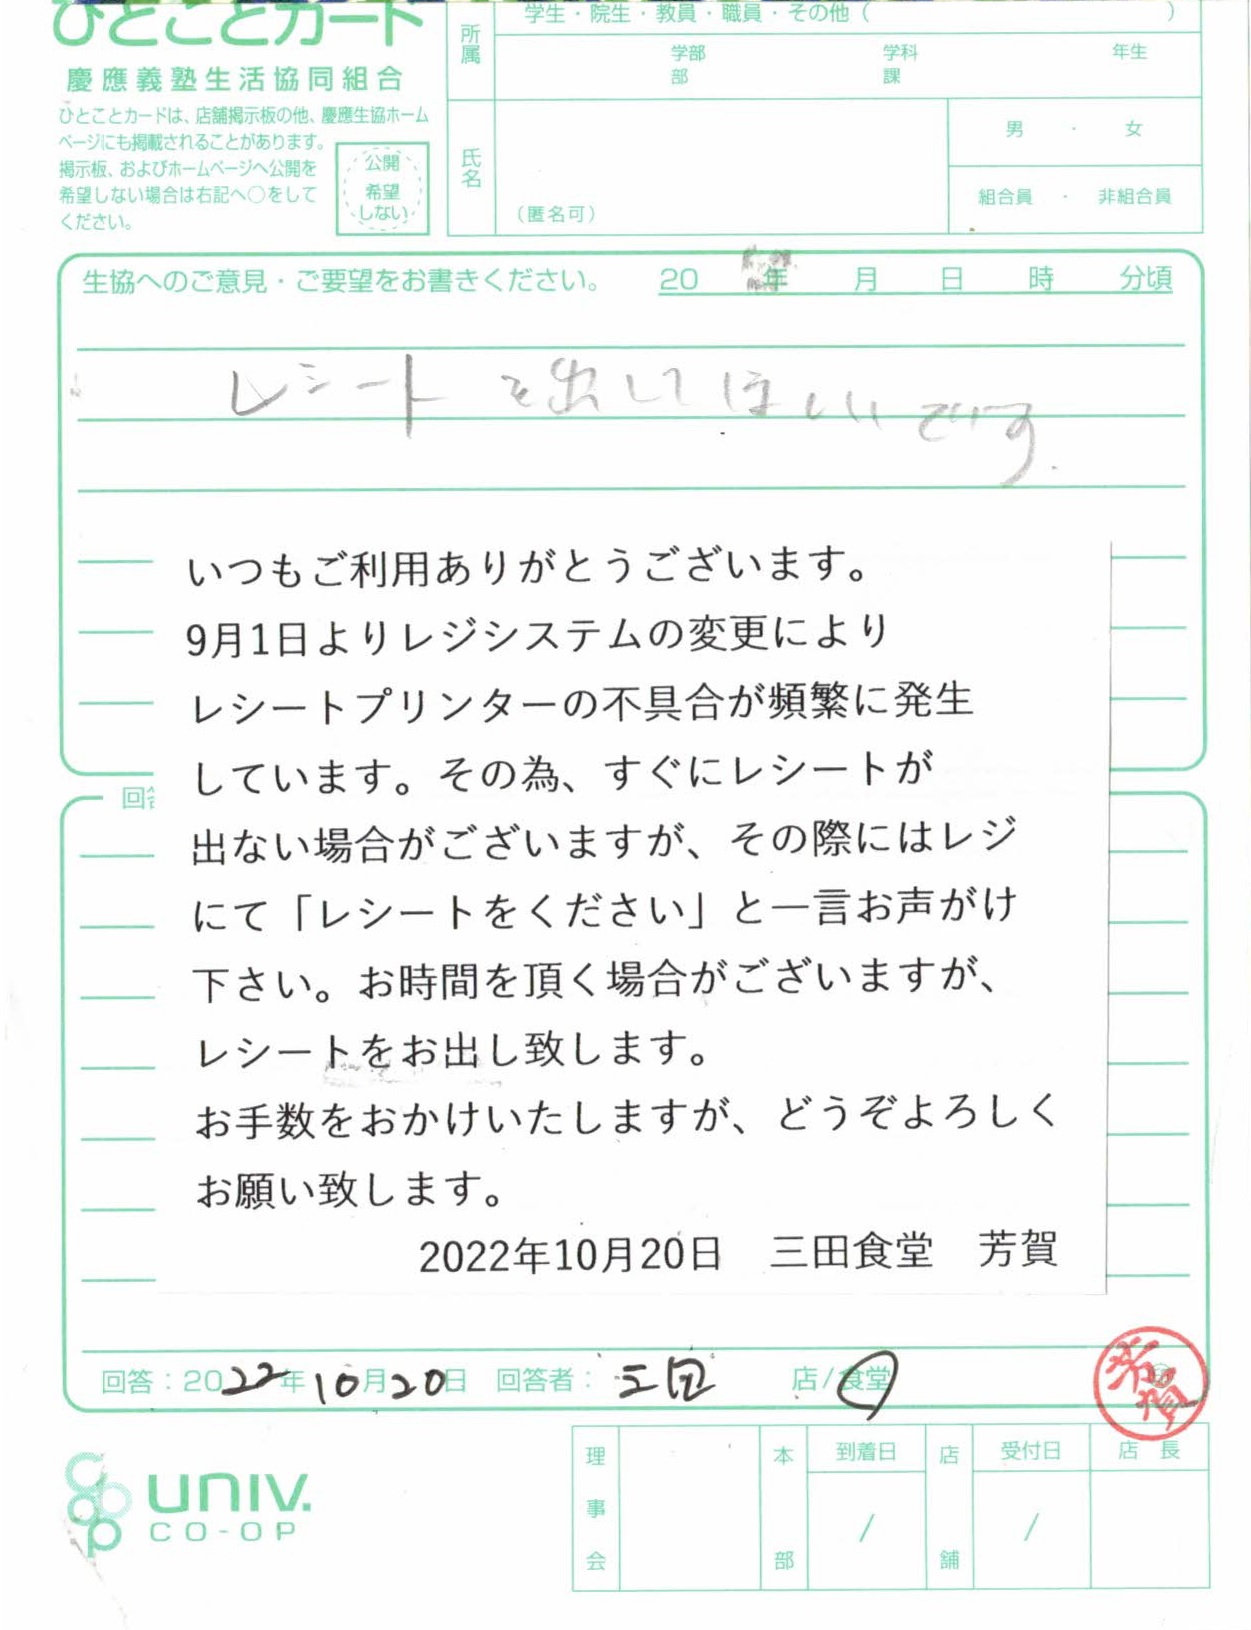 ひとことカード
慶應義塾生活協同組合
ひとことカードは、店舗掲示板の他、慶應生協ホーム
ページにも掲載されることがあります。
掲示板、およびホームページへ公開を
希望しない場合は右記へ○をして
ください。
公開
希望
しない
所属
学生・院生・教員・職員・その他（　　）
学部 学科 年生
部 課
氏名
（匿名可）
男 ・ 女
組合員 ・ 非組合員
生協へのご意見・ご要望をお書きください。 20 年 月 日 時 分頃
レシートを出してほしいです.
いつもご利用ありがとうございます。
9月1日よりレジシステムの変更により
レシートプリンターの不具合が頻繁に発生
しています。その為、すぐにレシートが
出ない場合がございますが、その際にはレジ
にて「レシートをください」と一言お声がけ
下さい。お時間を頂く場合がございますが、
レシートをお出し致します。
お手数をおかけいたしますが、どうぞよろしく
お願い致します。
2022年10月20日　三田食堂　芳賀
回答：2022年10月20日 回答者：三田 店/食堂
芳賀
univ.
CO-OP
理事会
本部
到着日
/
店舗
受付日
/
店長